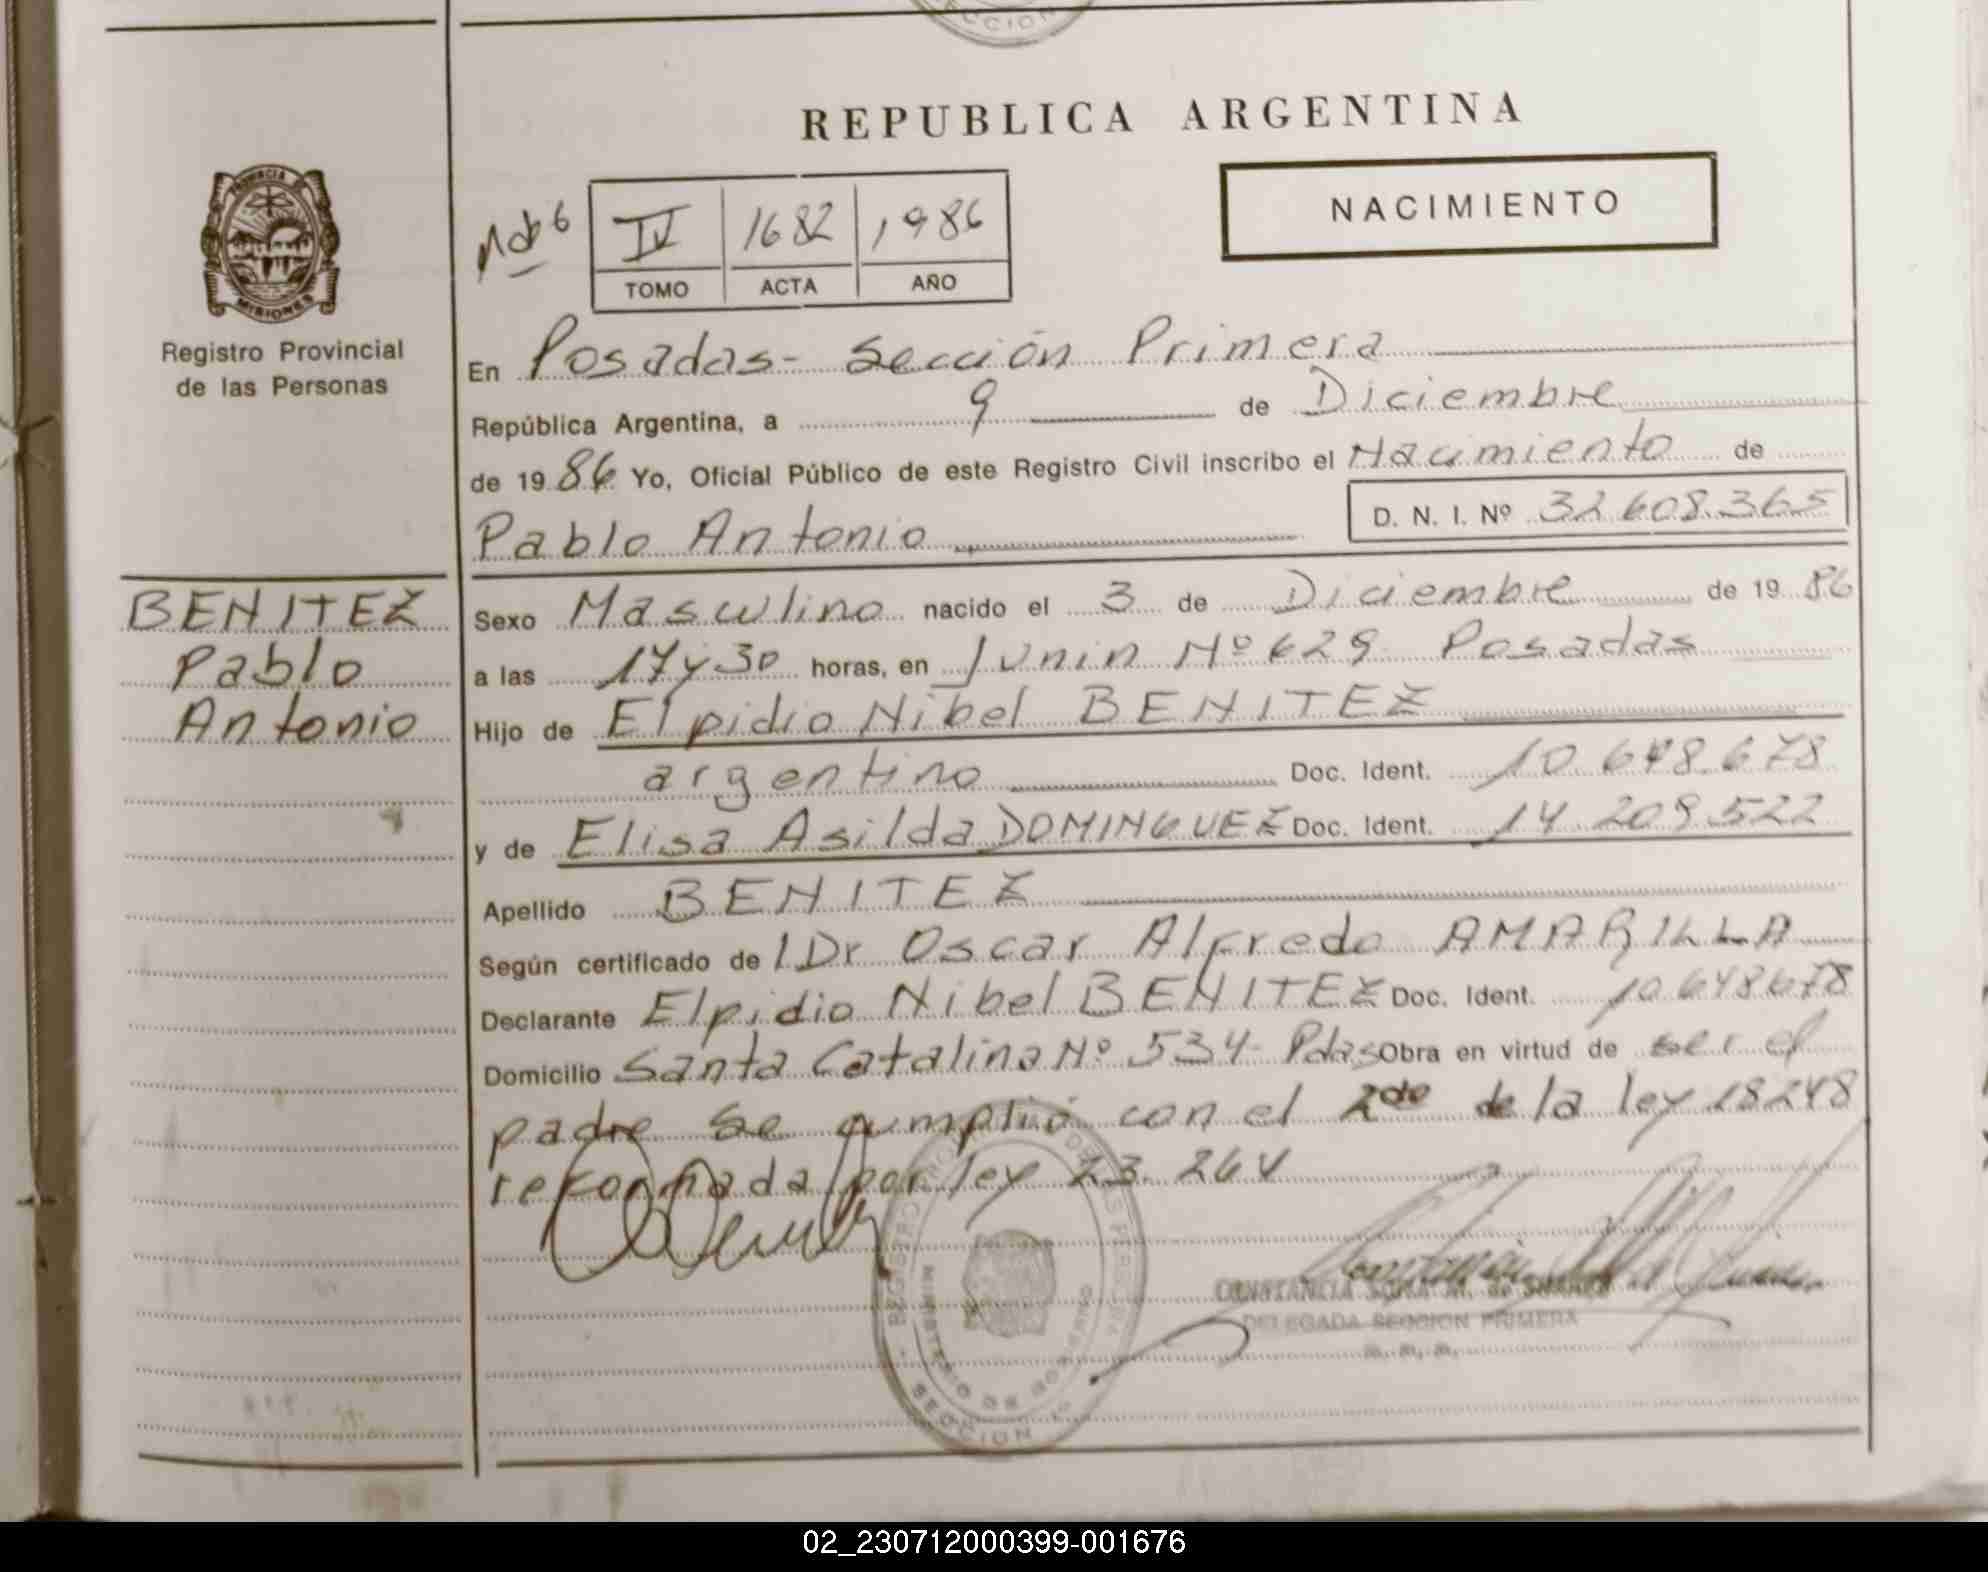 SECCION
REPUBLICA ARGENTINA
PROVINCIA DE
MISIONES
Registro Provincial
de las Personas
IV 1682 1986
TOMO ACTA AÑO
NACIMIENTO
En Posadas - Sección Primera
República Argentina, a 9 de Diciembre
de 1986 Yo, Oficial Público de este Registro Civil inscribo el Nacimiento de
Pablo Antonio D. N. I. Nº 32.608.365
BENITEZ
Pablo
Antonio
Sexo Masculino nacido el 3 de Diciembre de 1986
a las 17 y 30 horas, en Junin Nº 629 Posadas
Hijo de Elpidio Nibel BENITEZ
argentino Doc. Ident. 10.648.678
y de Elisa Asilda DOMINGUEZ Doc. Ident. 14.209.522
Apellido BENITEZ
Según certificado de l Dr Oscar Alfredo AMARILLA
Declarante Elpidio Nibel BENITEZ Doc. Ident. 10.648678
Domicilio Santa Catalina Nº 534 - Pdas Obra en virtud de ser el
padre Se cumplió con el 2do de la ley 18248
reformada por ley 23.264
REGISTRO PROVINCIAL DE LAS PERSONAS
MINISTERIO DE GOBIERNO
SECCION 1a
CONSTANCIA
DELEGADA SECCION PRIMERA
02_230712000399-001676